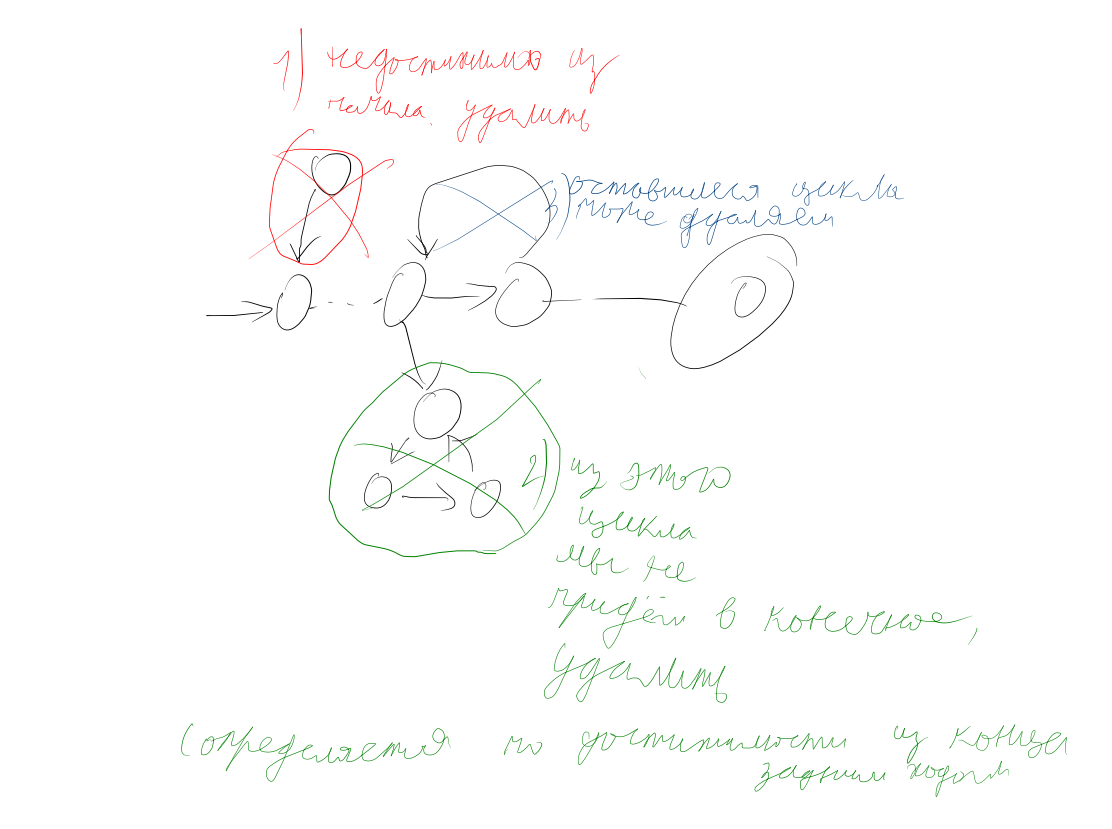 1) недостижимо из
начала удалить
3) оставшиеся цикла
тоже удаляем
2) из этого
цикла
мы не
придём в конечное,
удалить
(определяется по достижимости из конца
задним ходом